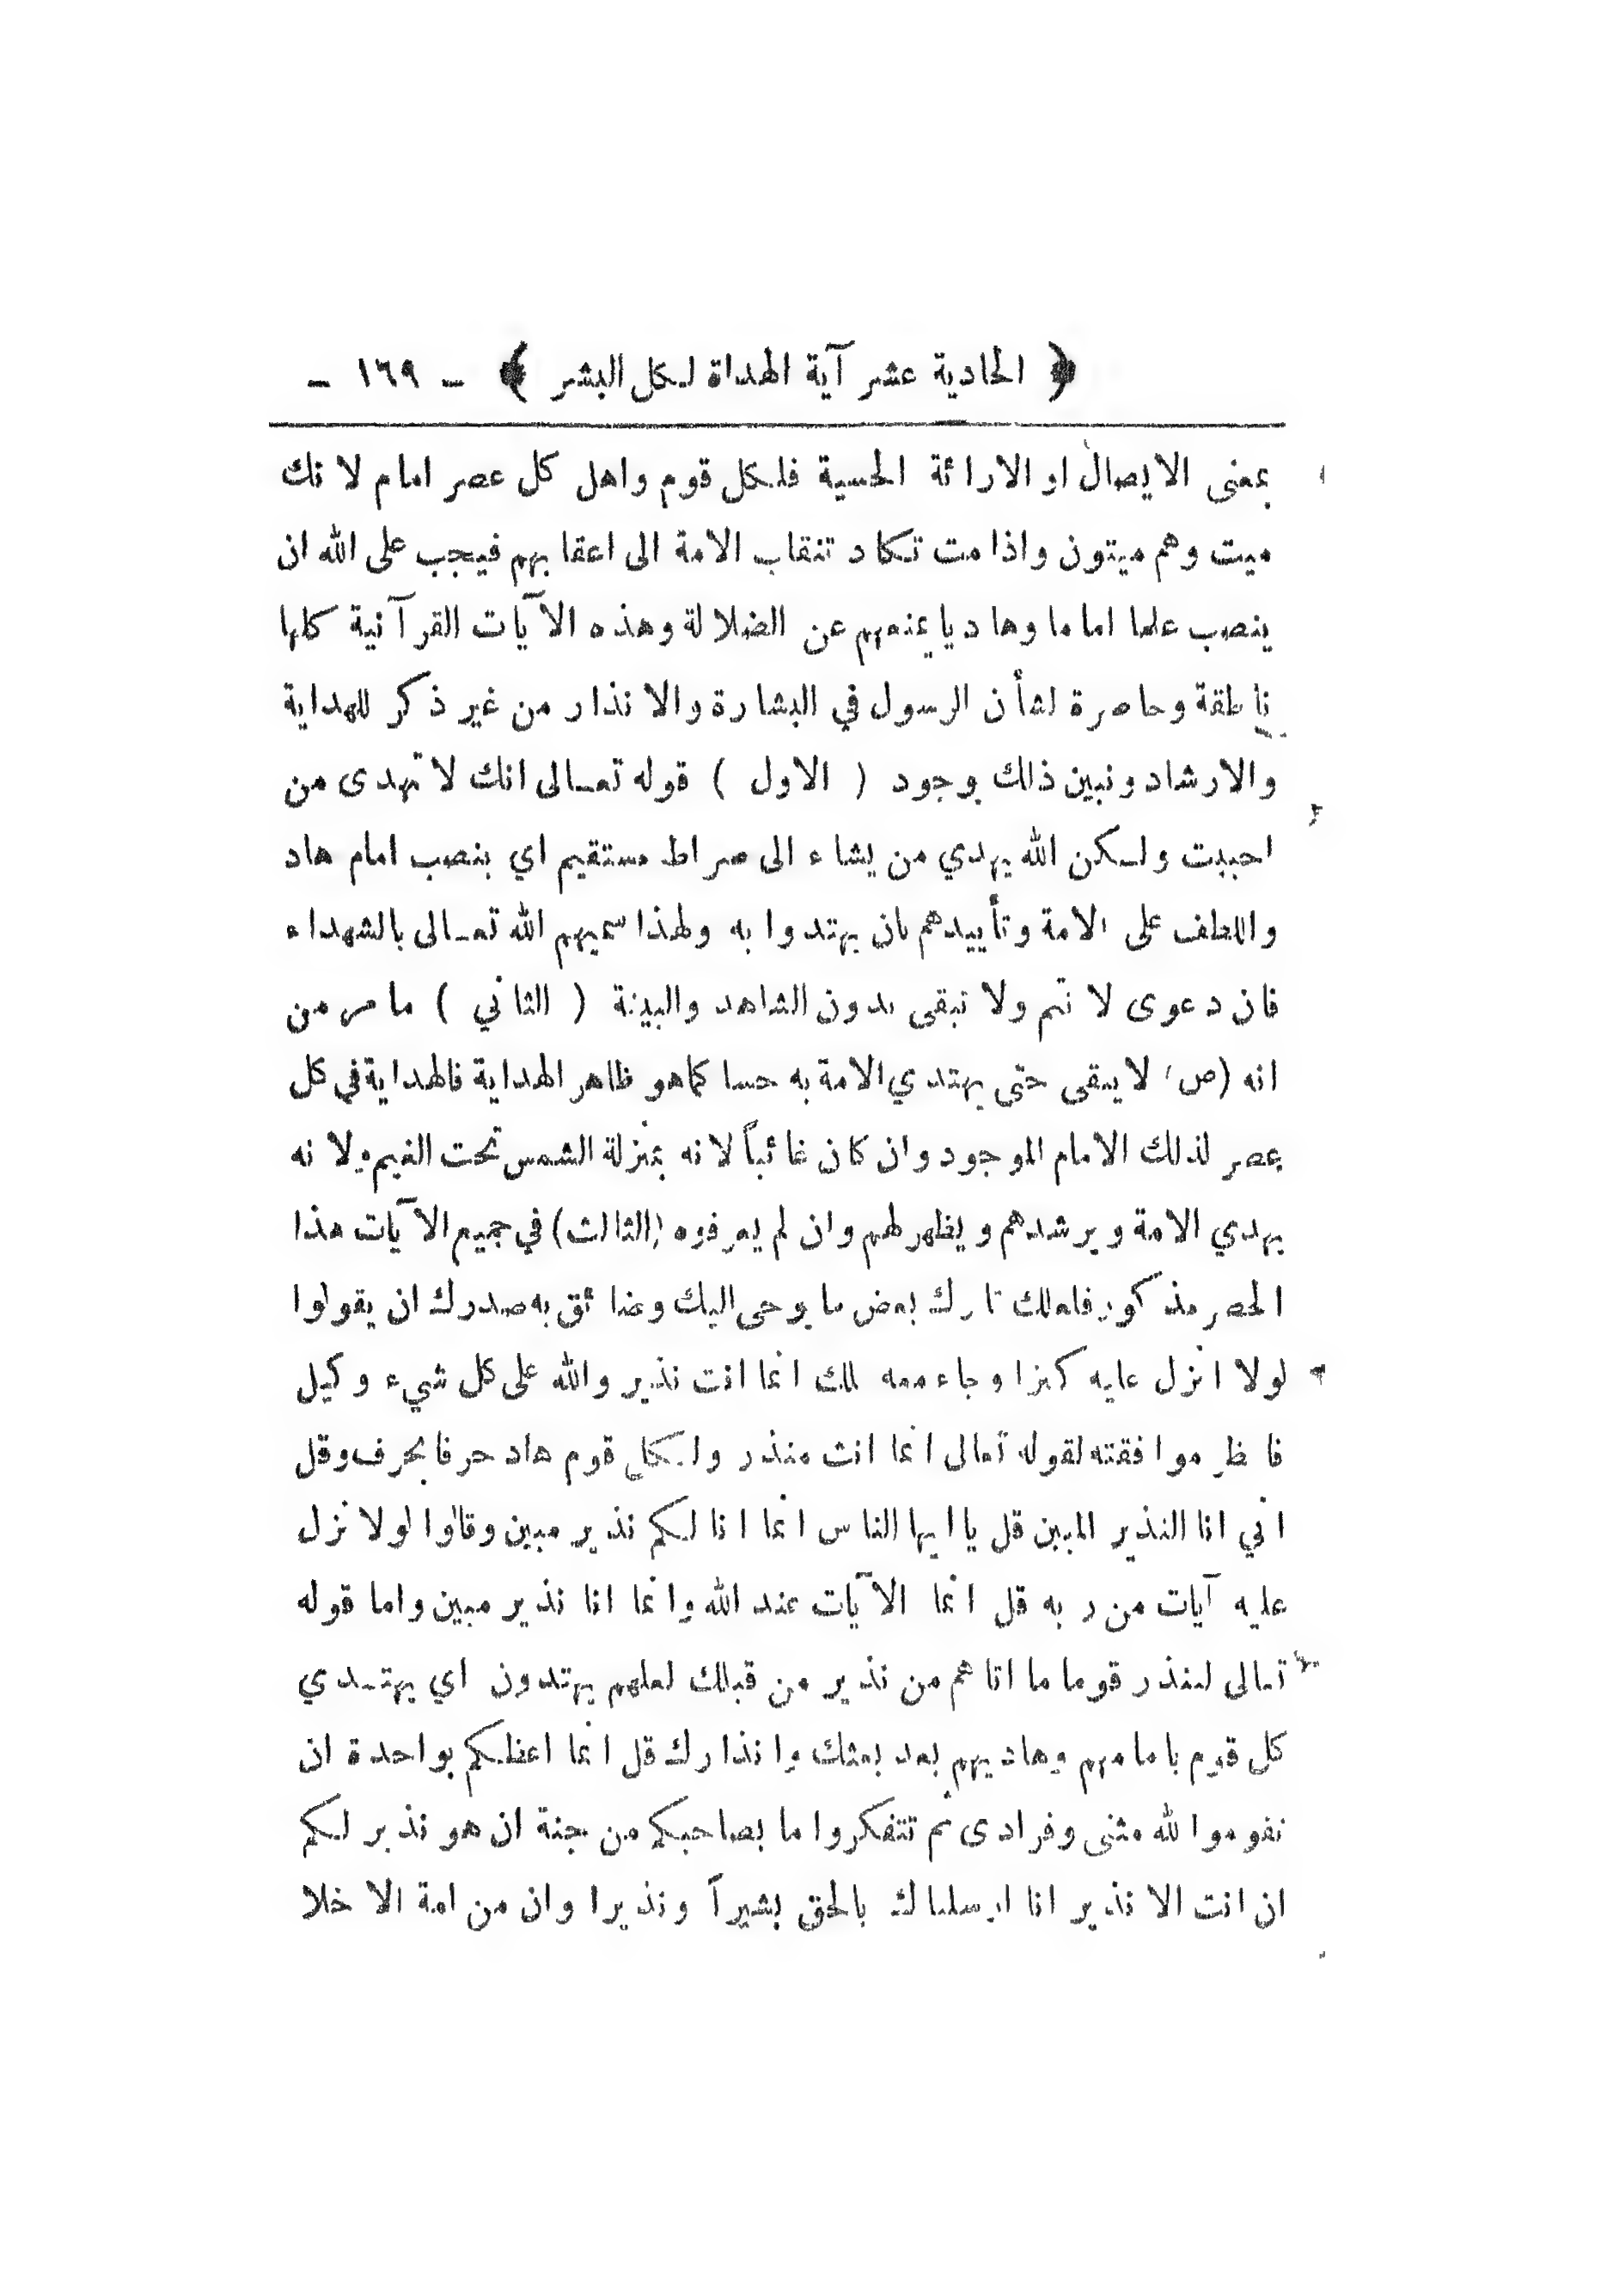 ﴿ الحادية عشر آية الهداة لكل البشر ﴾ ـ ١٦٩ ـ
بمعنى الايصال او الارائة الحسية فلكل قوم واهل كل عصر امام لانك
ميت وهم ميتون واذا مت تكاد تنقاب الامة الى اعقابهم فيجب على الله ان
ينصب علما اماما وهاديا يمنعهم عن الضلالة وهذه الآيات القرآنية كلها
ناطقة وحاصرة لشأن الرسول في البشارة والانذار من غير ذكر للهداية
والارشاد ونبين ذلك بوجود ( الاول ) قوله تعالى انك لا تهدى من
احببت ولكن الله يهدي من يشاء الى صراط مستقيم اي بنصب امام هاد
واللطف على الامة وتأييدهم بان يهتدوا به ولهذا سميهم الله تعالى بالشهداء
فان دعوى لا تتم ولا تبقى بدون الشاهد والبينة ( الثاني ) ما مر من
انه (ص) لا يبقى حتى يهتدي الامة به حسا كما هو ظاهر الهداية فالهداية في كل
عصر لذلك الامام الموجود وان كان غائباً لانه بمنزلة الشمس تحت الغيم ولانه
يهدي الامة ويرشدهم ويظهر لهم وان لم يعرفوه (الثالث) في جميع الآيات هذا
الحصر مذكور فلعلك تارك بعض ما يوحى اليك وضائق به صدرك ان يقولوا
لولا انزل عليه كنز او جاء معه ملك انما انت نذير والله على كل شيء وكيل
فانظر موافقته لقوله تعالى انما انت منذر ولكل قوم هاد حرفا بحرف وقل
اني انا النذير المبين قل يا ايها الناس انما انا لكم نذير مبين وقالوا لولا نزل
عليه آيات من ربه قل انما الآيات عند الله وانما انا نذير مبين واما قوله
تعالى لتنذر قوما ما اتاهم من نذير من قبلك لعلهم يهتدون اي يهتدي
كل قوم بامامهم وهاديهم بعد بعثك وانذارك قل انما اعظكم بواحدة ان
تقوموا لله مثنى وفرادى ثم تتفكروا ما بصاحبكم من جنة ان هو نذير لكم
ان انت الا نذير انا ارسلناك بالحق بشيراً ونذيرا وان من امة الا خلا